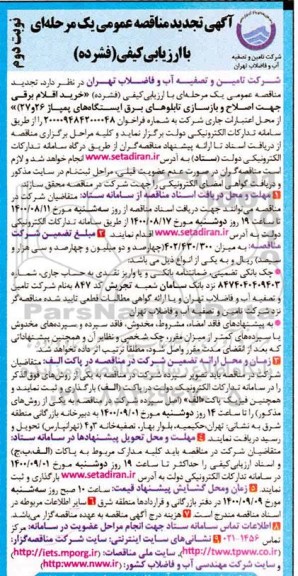 نوبت دوم
آگهی تجدید مناقصه عمومی یک مرحله‌ای
با ارزیابی کیفی (فشرده)
شرکت تامین و تصفیه
آب و فاضلاب تهران
شرکت تامین و تصفیه آب و فاضلاب تهران در نظر دارد، تجدید
مناقصه عمومی یک مرحله‌ای با ارزیابی کیفی (فشرده) «خرید اقلام برقی
جهت اصلاح و بازسازی تابلوهای برق ایستگاه‌های پمپاژ ۲۶ و ۲۷»
از محل اعتبارات جاری شرکت به شماره فراخوان ۲۰۰۰۰۹۴۸۴۲۰۰۰۰۴۸ را از طریق
سامانه تدارکات الکترونیکی دولت برگزار نماید و کلیه مراحل برگزاری مناقصه
از دریافت اسناد تا ارائه پیشنهاد مناقصه‌گران از طریق درگاه سامانه تدارکات
الکترونیکی دولت (ستاد) به آدرس www.setadiran.ir انجام خواهد شد و لازم
است مناقصه‌گران در صورت عدم عضویت قبلی، مراحل ثبت‌نام در سایت مذکور
و دریافت گواهی امضای الکترونیکی را جهت شرکت در مناقصه محقق سازند.
۱ مهلت و محل دریافت اسناد مناقصه از سامانه ستاد: متقاضیان شرکت در
مناقصه می‌توانند جهت دریافت اسناد مناقصه از روز سه‌شنبه مورخ ۱۴۰۰/۰۸/۱۱
تا ساعت ۱۹ روز دوشنبه مورخ ۱۴۰۰/۰۸/۱۷ از طریق سامانه تدارکات الکترونیکی
دولت به آدرس www.setadiran.ir اقدام نمایند. ۲ مبلغ تضمین شرکت
چک بانکی تضمینی، ضمانتنامه بانکی و یا واریز نقدی به حساب جاری، شماره
۸۴۷۴۰۴۰۹۴۰۳ نزد بانک سامان شعبه تجریش کد ۸۴۷ به نام شرکت تامین
و تصفیه آب و فاضلاب تهران و یا ارائه گواهی مطالبات قطعی تایید شده مناقصه‌گر
نزد شرکت تامین و تصفیه آب و فاضلاب تهران
به پیشنهادهای فاقد امضاء، مشروط، مخدوش، فاقد سپرده و سپرده‌های مخدوش
یا سپرده‌های کمتر از میزان مقرر، چک شخصی و نظایر آن و همچنین پیشنهاداتی
که بعد از انقضای مدت مقرر واصل شود، مطلقاً ترتیب اثر داده نخواهد شد.
۳ زمان و محل ارائه تضمین شرکت در مناقصه در پاکت الف: متقاضیان
شرق به نشانی: تهران، حکیمیه، بلوار بهار، تصفیه‌خانه ۳و۴ (تهرانپارس) تحویل و
رسید دریافت نمایند. ۴ مهلت و محل تحویل پیشنهادها در سامانه ستاد:
متقاضیان شرکت در مناقصه باید کلیه مدارک مربوط به پاکات (الف،ب،ج)
و اسناد ارزیابی کیفی را حداکثر تا ساعت ۱۹ روز دوشنبه مورخ ۱۴۰۰/۰۹/۰۱
در سامانه تدارکات الکترونیکی دولت به آدرس www.setadiran.ir بارگذاری و ثبت
نمایند. ۵ زمان و محل گشایش پیشنهاد قیمت: ساعت ۱۰ صبح روز سه‌شنبه
مورخ ۱۴۰۰/۰۹/۰۹ در دفتر بازرگانی و قراردادها منطقه شرق ۶ سایر اطلاعات مربوطه در
اسناد مناقصه مندرج است. ۷ هزینه درج آگهی مناقصه به عهده مناقصه‌گر می‌باشد.
۸ اطلاعات تماس سامانه ستاد جهت انجام مراحل عضویت در سامانه: مرکز
تماس ۱۴۵۶-۰۲۱ ۹ نشانی‌های سایت اینترنتی: سایت شرکت مناقصه‌گزار:
(http://tww.tpww.co.ir)، سایت ملی مناقصات: (http://iets.mporg.ir)
و سایت شرکت مهندسی آب و فاضلاب کشور: (http://www.nww.ir)